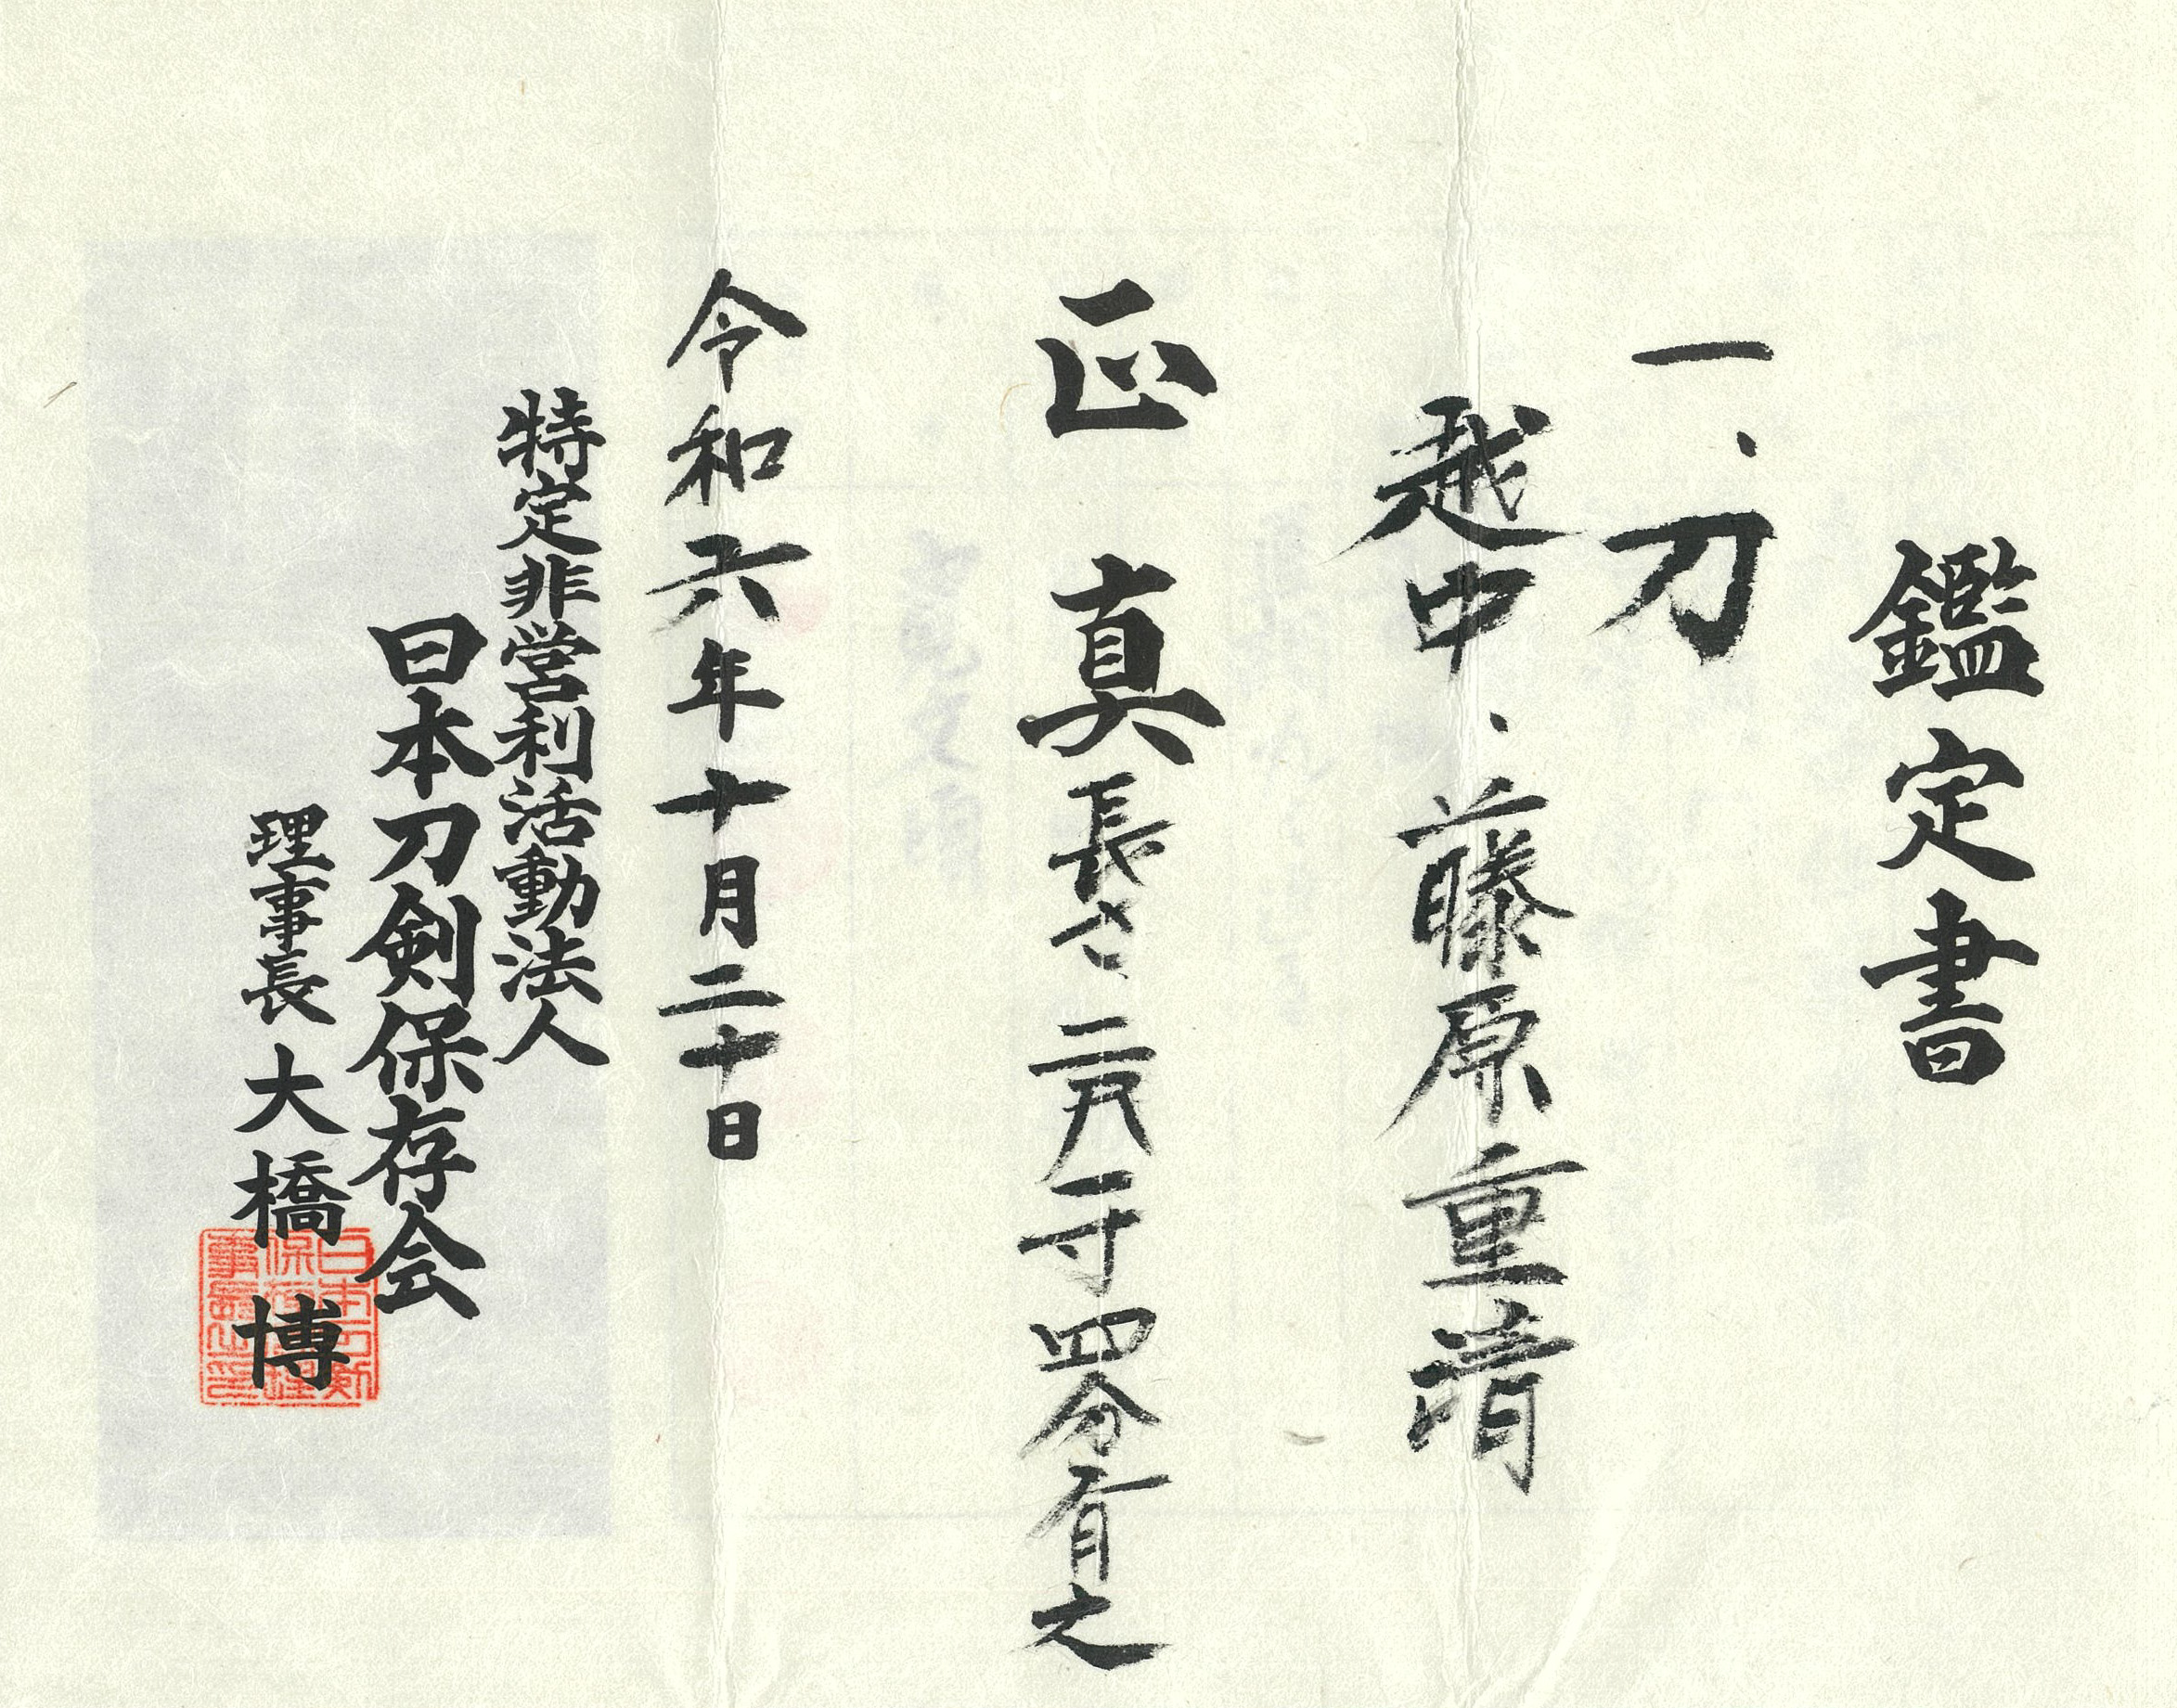 鑑定書
一、刀
越中・藤原重清
正真 長さ二尺一寸四分有之
令和六年十月二十日
特定非営利活動法人
日本刀剣保存会
理事長 大橋 博